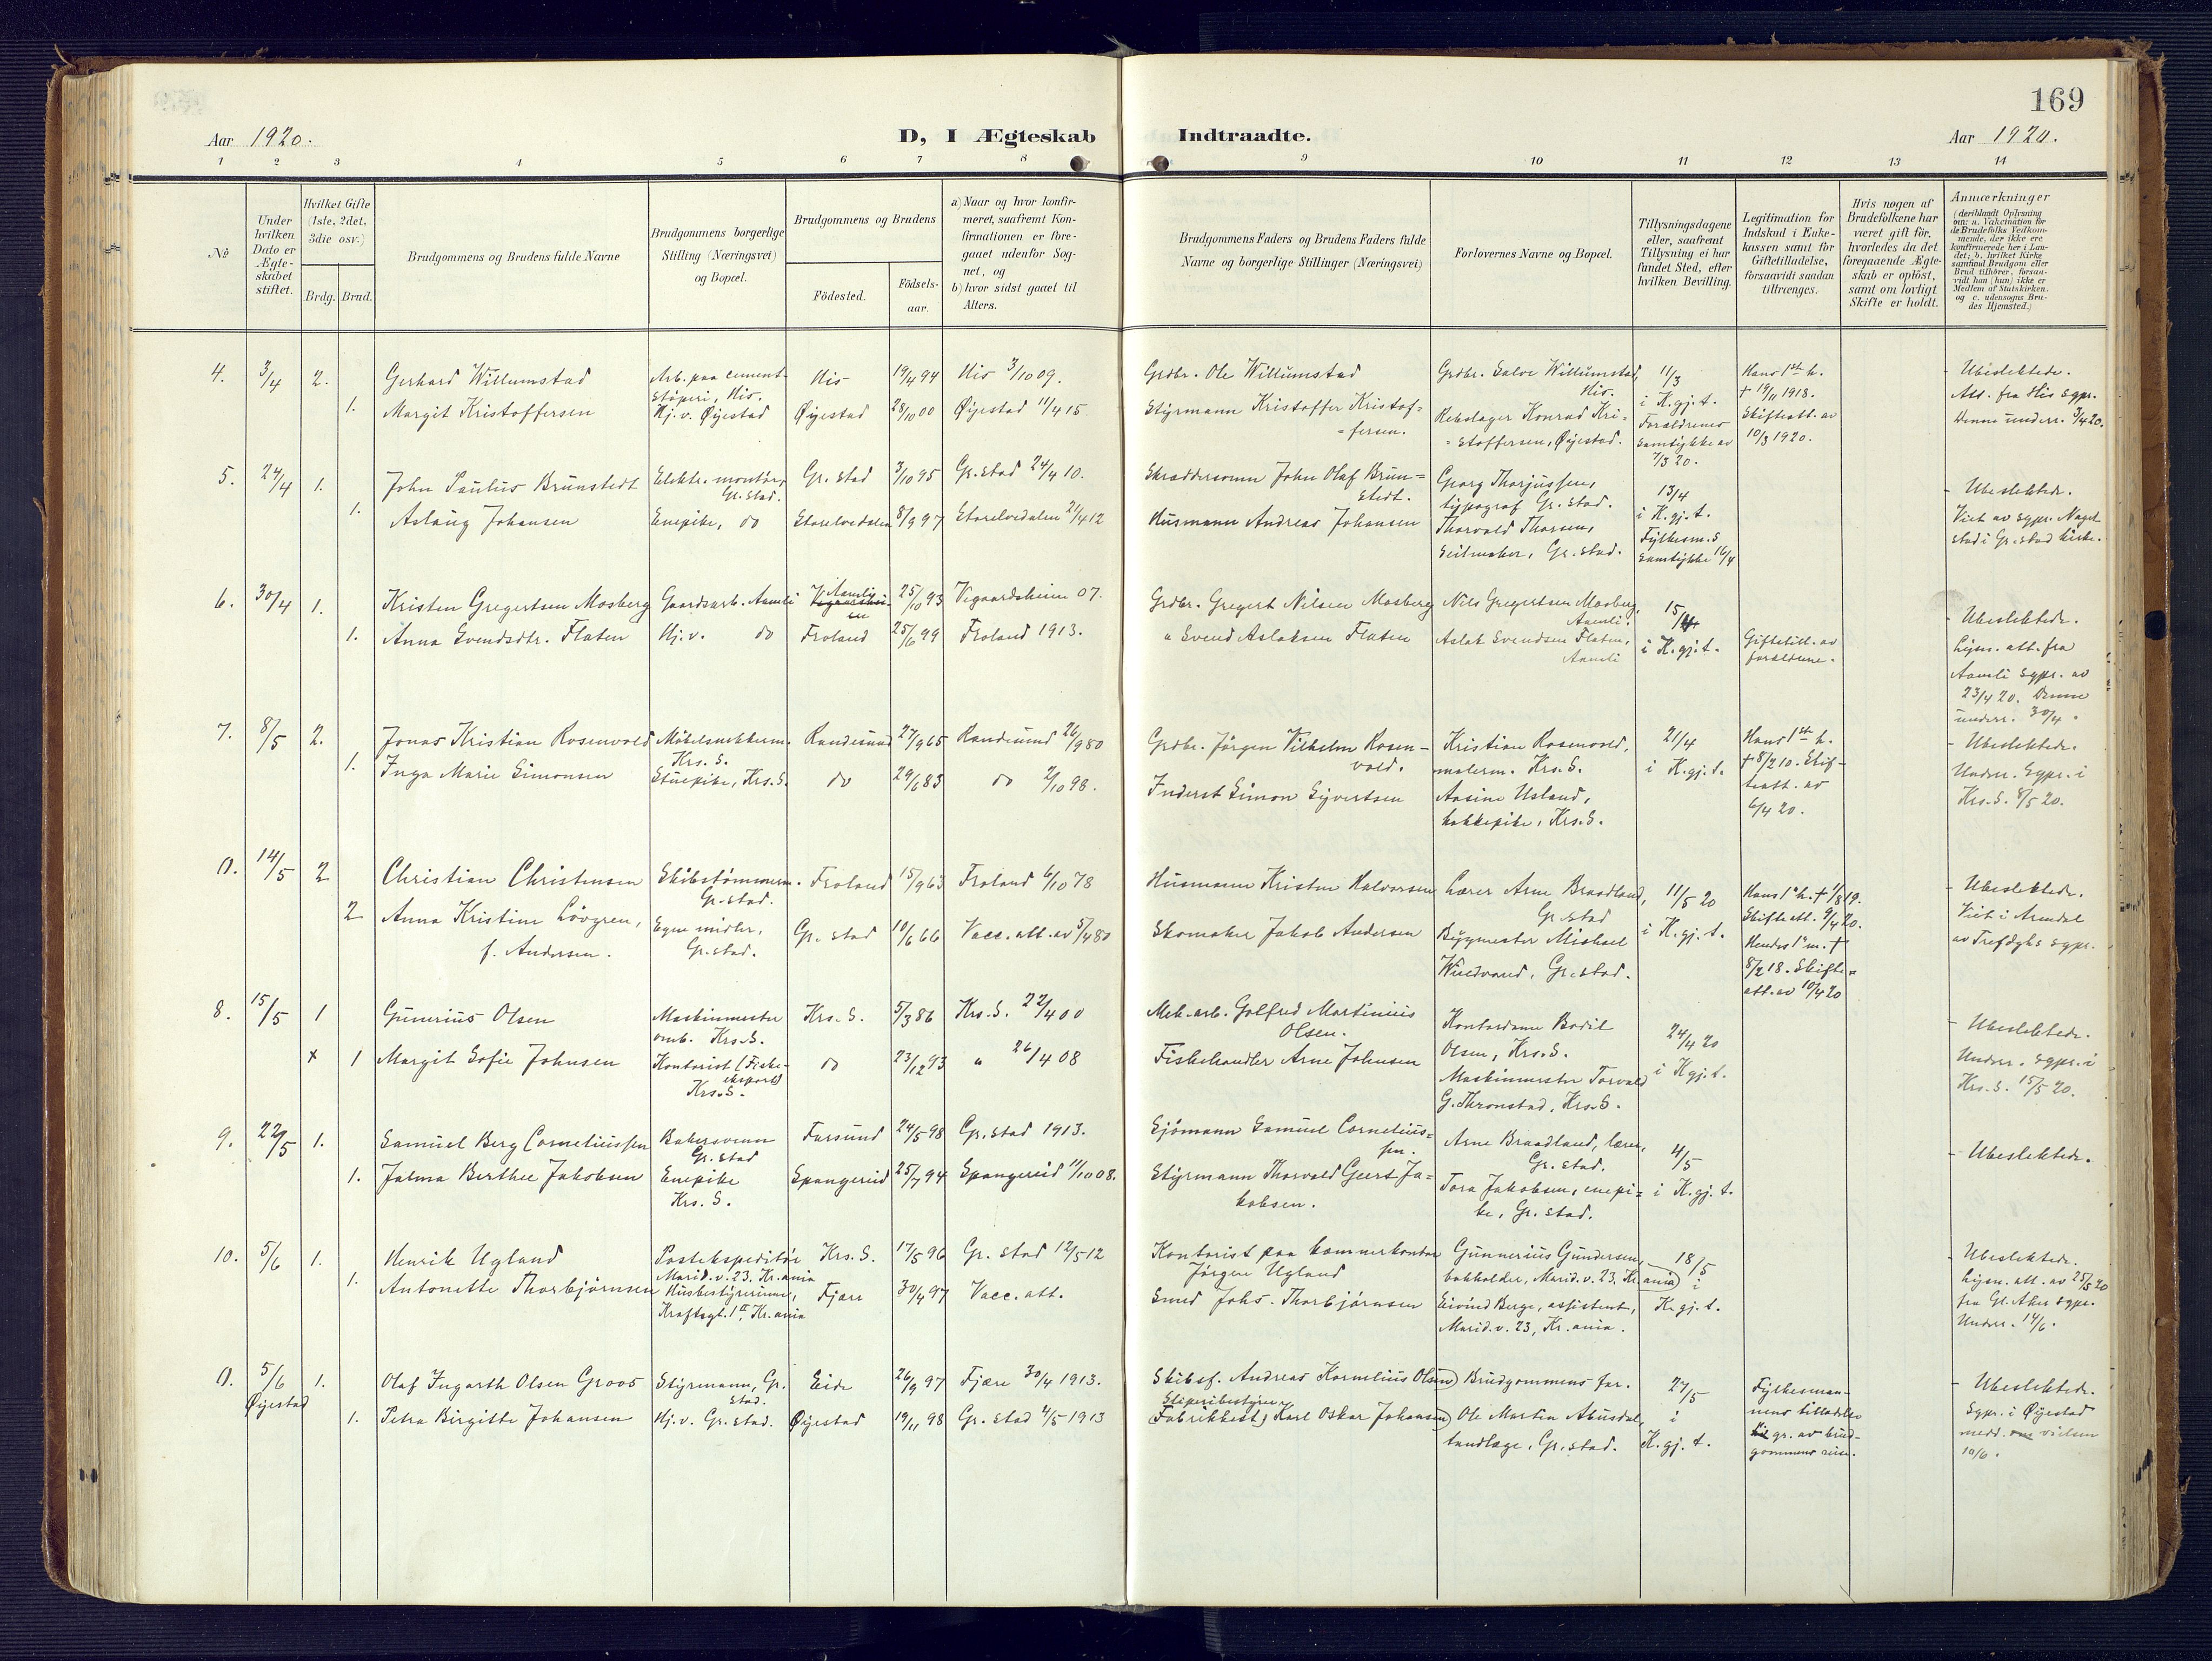 169
Aar 1920.
D, I Ægteskab Indtraadte.
Aar 1920.
1 2 3 4 5 6 7 8 9 10 11 12 13 14
No
Under hvilken Dato er Ægteskabet stiftet.
Hvilket Gifte (1ste, 2det, 3die osv.)
Brdg. Brud.
Brudgommens og Brudens fulde Navne
Brudgommens borgerlige Stilling (Næringsvei) og Bopæl.
Brudgommens og Brudens
Födested.
Födselsaar.
a) Naar og hvor konfirmeret, saafremt Konfirmationen er foregaaet udenfor Sognet, og
b) hvor sidst gaaet til Alters.
Brudgommens Faders og Brudens Faders fulde Navne og borgerlige Stillinger (Næringsvei)
Forlovernes Navne og Bopæl.
Tillysningsdagene eller, saafremt Tillysning ei har fundet Sted, efter hvilken Bevilling.
Legitimation for Indskud i Enkekassen samt for Giftetilladelse, forsaavidt saadan tiltrænges.
Hvis nogen af Brudefolkene har været gift för, hvorledes da det foregaaende Ægteskab er oplöst, samt om lovligt Skifte er holdt.
Anmærkninger
(deriblandt Oplysning om: a. Vakcination for de Brudefolks Vedkommende, der ikke ere konfirmerede her i Landet; b. hvilket Kirkesamfund Brudgom eller Brud tilhörer, forsaavidt han (hun) ikke er Medlem af Statskirken. og c. udensogns Brudes Hjemsted.)
4. 3/4 2. Gerhard Willumstad
Arb. paa cementstöperi, His.
His 19/4 94 His 3/10 09.
Grdbr. Ole Willumstad
Grdbr. Salve Willumstad, His.
11/3 i K.gj.t. Forældrenes samtykke av 7/3 20.
Hans 1ste h. † 19/11 1918. Skifteatt. av 10/3 1920.
Ubeslektede. Att. fra His sgpr. Denne underr. 3/4 20.
1. Margit Kristoffersen
Hj.v. Øyestad Øyestad 28/10 00 Øyestad 11/4 15.
Styrmann Kristoffer Kristoffersen.
Rebslager Konrad Kristoffersen, Øyestad.
5. 24/4 1. John Paulus Brunstedt
Elektr. montör, Gr.stad.
Gr. stad 3/10 95 Gr. stad 24/4 10.
Skræddersvenn John Olaf Brunstedt.
Georg Thorjussen, typograf Gr. stad.
13/4 i K.gj.t. Fylkesm.s samtykke 16/4
Ubeslektede. Viet av sgpr. i Gr.stad kirke.
1. Aslaug Johansen
Enepike, do Storelvedalen 8/9 97 Storelvedalen 21/4 12
Husmann Andreas Johansen
Thorvald Thorsen, Seilmaker, Gr. stad.
6. 30/4 1. Kristen Gregertsen Mosberg
Gaardsarb. Aamli
Aamli 25/10 93 Vegaardsheien 07.
Grdbr. Gregert Nilsen Mosberg
Nils Gregertsen Mosberg, Aamli.
15/4 i K.gj.t.
Giftetill. av forældrene.
Ubeslektede. Lysn. att. fra Aamli sgpr. av 23/4 20. Denne underr. 30/4.
1. Anna Svendsdtr. Flaten
Hj.v. do Froland 25/6 99 Froland 1913.
" Svend Aslaksen Flaten
Aslak Svendsen Flaten, Aamli
7. 8/5 2. Jonas Kristian Rosenvold
Møbelsnekkerm. Krs. S.
Randesund 27/9 65 Randesund 26/9 80
Grdbr. Jörgen Vilhelm Rosenvold.
Kristian Rosenvold, malerm. Krs. S.
21/4 i K.gj.t.
Hans 1ste h. † 8/2 10. Skifteatt. av 6/4 20.
Ubeslektede. Underr. Sgpr. i Krs.S. 8/5 20.
1. Inga Marie Simonsen
Stuepike, Krs.S. do 29/6 83 do 2/10 98.
Inderst Simon Syvertsen
Aasine Usland, kokkepike, Krs.S.
0. 14/5 2 Christian Christensen
Skibstömmerm. Gr.stad.
Froland 15/9 63 Froland 6/10 78
Husmann Kristen Halvorsen
Lærer Arne Braadland, Gr.stad
11/5 20 i K.gj.t.
Hans 1ª h. † 1/8 19. Skifteatt. 9/4 20. Hendes 1ª m. † 8/2 18. Skifteatt. av 10/4 20
Ubeslektede. Viet i Arendal av sgpr.
2 Anna Kristine Lövgren, f. Andersen.
Egne midler, Gr.stad.
Gr. stad 10/6 66 Vacc. att. av 5/4 80
Skomaker Jakob Andersen
Bygmester Michael Gr. stad.
8. 15/5 1 Gunerius Olsen
Maskinmester omb. Krs.S.
Krs. S. 5/3 86 Krs. S. 22/4 00
Mek. arb. Golfred Martinius Olsen.
Kontordame Bodil Olsen, Krs.S.
24/4 20 i K.gj.t.
Ubeslektede. Underr. sgpr. i Krs. S. 15/5 20.
x 1 Margit Sofie Johnsen
Kontorist (Fiskeeksport) Krs.S.
do 23/12 93 " 26/4 08
Fiskehandler Arne Johnsen
Maskinmester Torvald G. Thronstad, Krs.S.
9. 22/5 1. Samuel Berg Corneliussen
Bakersvenn Gr.stad
Farsund 24/5 98 Gr. stad 1913.
Sjömann Samuel Corneliussen.
Arne Braadland, lærer, Gr. stad.
4/5 i K.gj.t.
Ubeslektede.
1. Jalma Berthee Jakobsen
Enepike Krs. S.
Spangereid 25/7 94 Spangereid 11/10 08.
Styrmann Thorvald Geert Jakobsen.
Tora Jakobsen, enepike, Gr. stad.
10. 5/6 1. Henrik Ugland
Postekspeditör Marid. v. 23, Kr.ania
Krs. S. 17/5 96 Gr. stad 12/5 12
Kontorist paa kæmnerkontor Jörgen Ugland
Gunnerius Gundersen, bokholder, Marid.v. 23, Kr.ania
18/5 i K.gj.t.
Ubeslektede. Lysn. att. av 25/5 20 fra Gl. Aker sgpr. Underr. 14/6.
1. Antonette Thorbjörnsen
Husbestyrerinne, Kr.ania
Fjære 30/4 97 Vacc. att.
Smed Johs. Thorbjörnsen
Eivind Berge, assistent, Marid.v. 23, Kr.ania.
0. 5/6 Øyestad 1. Olaf Ingarth Olsen Groos
Styrmann, Gr. stad.
Eide 26/9 97 Fjære 30/4 1913.
Skibsf. Andreas Kornelius Olsen)
Brudgommens far.
27/5 i K.gj.t.
Fylkesmannens tilladelse gr. av brudgommens reise.
Ubeslektede. Sgpr. i Øyestad medd. vielsen 10/6.
1. Petra Birgitte Johansen
Hj.v. Gr. stad. Øyestad 19/11 98 Gr. stad 4/5 1913
Karl Oskar Johansen)
Ole Martin Abusdal, tandlæge, Gr. stad.